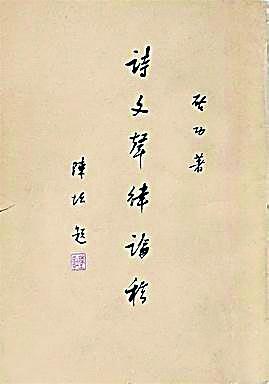 启功著
詩文聲律論稿
陳垣題